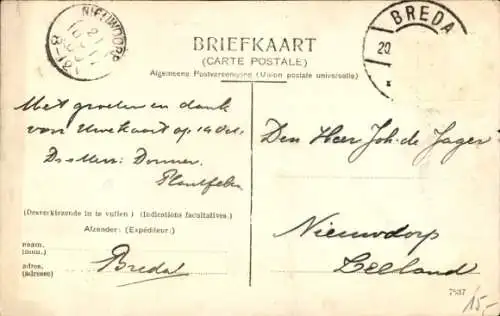 NIEUWDORP
BREDA
20
BRIEFKAART
(CARTE POSTALE)
Algemeene Postvereeniging (Union postale universelle)
Met groeten en dank
voor Uwe kaart op 19 Oct.
Donner.
Den Heer Joh. de Jager
Nieuwdorp
Zeeland
(Desverkiezende in te vullen) (Indications facultatives.)
Afzender: (Expéditeur:)
naam,
(nom.)
adres,
(adresse)
Breda
7837
15,-